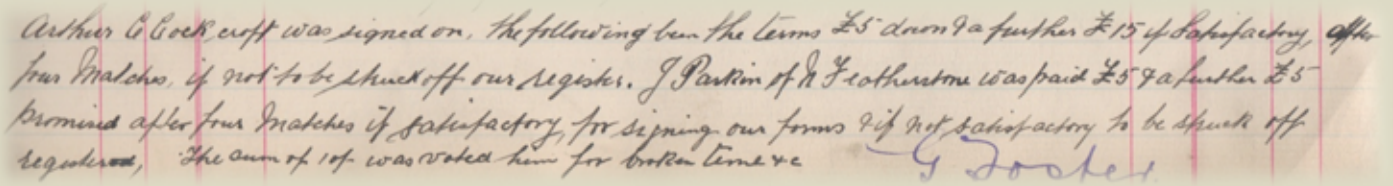 Arthur C Cockcroft was signed on, the following been the terms £5 down & a further £15 if Satisfactory, after
four Matches, if not to be struck off our register. J Parkin of N Featherstone was paid £5 & a further £5
promised after four Matches if satisfactory, for signing our forms & if not satisfactory to be struck off
register, The sum of 10/- was voted him for broken time &c
G Foster